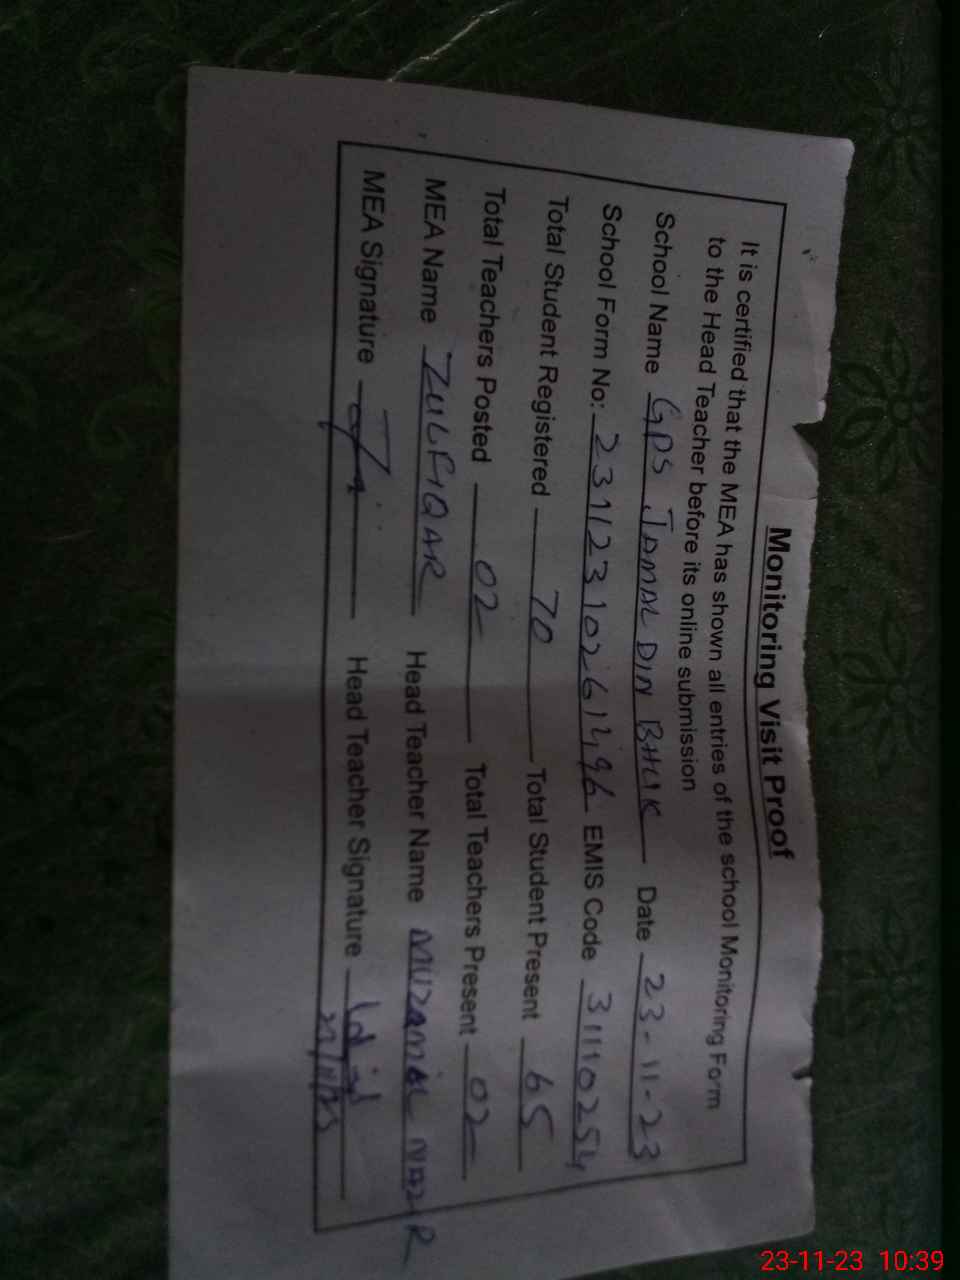 Monitoring Visit Proof
It is certified that the MEA has shown all entries of the school Monitoring Form
to the Head Teacher before its online submission
School Name GPS JAMAL DIN BHUK Date 23-11-23
School Form No: EMIS Code 31110254
Total Student Registered 70 Total Student Present 65
Total Teachers Posted 02 Total Teachers Present 02
MEA Name ZULFIQAR Head Teacher Name MUZAMAL NAZIR
MEA Signature Head Teacher Signature
23-11-23 10:39